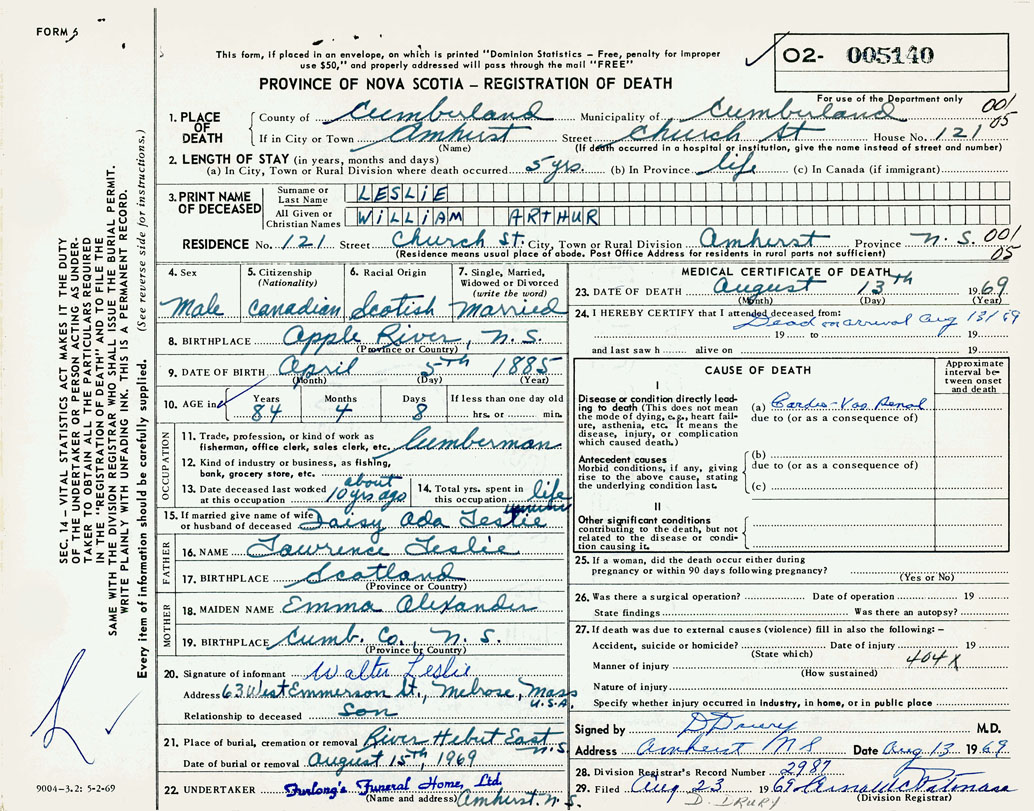 FORM 5
This form, if placed in an envelope, on which is printed "Dominion Statistics – Free, penalty for improper
use $50," and properly addressed will pass through the mail "FREE"
PROVINCE OF NOVA SCOTIA – REGISTRATION OF DEATH
02- 005140
For use of the Department only
001
05
1. PLACE OF DEATH
County of Cumberland Municipality of Cumberland
If in City or Town Amhurst Street Church St House No. 121
(Name) (If death occurred in a hospital or institution, give the name instead of street and number)
2. LENGTH OF STAY (in years, months and days)
(a) In City, Town or Rural Division where death occurred 5 yrs. (b) In Province life (c) In Canada (if immigrant)
3. PRINT NAME OF DECEASED
Surname or Last Name LESLIE
All Given or Christian Names WILLIAM ARTHUR
RESIDENCE No. 121 Street Church St. City, Town or Rural Division Amherst Province N.S. 001
05
(Residence means usual place of abode. Post Office Address for residents in rural parts not sufficient)
4. Sex
Male
5. Citizenship
(Nationality)
Canadian
6. Racial Origin
Scotish
7. Single, Married,
Widowed or Divorced
(write the word)
Married
8. BIRTHPLACE Apple River, N.S.
(Province or Country)
9. DATE OF BIRTH April 5th 1885
(Month) (Day) (Year)
10. AGE in Years Months Days If less than one day old
84 4 8 hrs. or min.
OCCUPATION
11. Trade, profession, or kind of work as
fisherman, office clerk, sales clerk, etc. Lumberman
12. Kind of industry or business, as fishing,
bank, grocery store, etc.
13. Date deceased last worked
at this occupation about 10 yrs ago
14. Total yrs. spent in
this occupation life
15. If married give name of wife
or husband of deceased Daisy Ada Leslie
FATHER
16. NAME Lawrence Leslie
17. BIRTHPLACE Scotland
(Province or Country)
MOTHER
18. MAIDEN NAME Emma Alexander
19. BIRTHPLACE Cumb. Co., N.S.
(Province or Country)
20. Signature of informant Walter Leslie
Address 63 West Emmerson St., Melrose, Mass
U.S.A.
Relationship to deceased Son
21. Place of burial, cremation or removal River Hebert East
N.S.
Date of burial or removal August 15th, 1969
22. UNDERTAKER Furlong's Funeral Home, Ltd.
(Name and address) Amherst, N.S.
MEDICAL CERTIFICATE OF DEATH
23. DATE OF DEATH August 13th 1969
(Month) (Day) (Year)
24. I HEREBY CERTIFY that I attended deceased from:
Dead on arrival Aug 13/69
19 to 19
and last saw h alive on 19
CAUSE OF DEATH
Approximate
interval be-
tween onset
and death
I
Disease or condition directly lead-
ing to death (This does not mean
the mode of dying, e.g., heart fail-
ure, asthenia, etc. It means the
disease, injury, or complication
which caused death.)
(a) Cardio-Vas Renal
due to (or as a consequence of)
Antecedent causes
Morbid conditions, if any, giving
rise to the above cause, stating
the underlying condition last.
(b)
due to (or as a consequence of)
(c)
II
Other significant conditions
contributing to the death, but not
related to the disease or condi-
tion causing it.
25. If a woman, did the death occur either during
pregnancy or within 90 days following pregnancy?
(Yes or No)
26. Was there a surgical operation? Date of operation 19
State findings Was there an autopsy?
27. If death was due to external causes (violence) fill in also the following: –
Accident, suicide or homicide? Date of injury 19
(State which)
Manner of injury 404X
(How sustained)
Nature of injury
Specify whether injury occurred in industry, in home, or in public place
Signed by D Drury M.D.
Address Amherst NS Date Aug 13 1969
28. Division Registrar's Record Number 2987
29. Filed Aug 23 1969
(Division Registrar)
D. DRURY
SEC. 14 – VITAL STATISTICS ACT MAKES IT THE DUTY
OF THE UNDERTAKER OR PERSON ACTING AS UNDER-
TAKER TO OBTAIN ALL THE PARTICULARS REQUIRED
IN THE "REGISTRATION OF DEATH" AND TO FILE THE
SAME WITH THE DIVISION REGISTRAR WHO SHALL ISSUE THE BURIAL PERMIT.
WRITE PLAINLY WITH UNFADING INK. THIS IS A PERMANENT RECORD.
Every item of information should be carefully supplied. (See reverse side for instructions.)
9004–3.2: 5-2-69